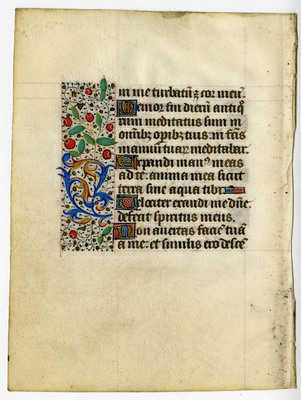 in me turbatū ē cor meū.
Memor fui dierū antiq̄
rum meditatus sum in
omībȝ opībȝ tuis in fc̄is
manuū tuaꝝ meditabar.
Expandi man⁹ meas
ad te: anima mea sicut
terra sine aqua tibi
Velociter exaudi me dn̄e:
defecit spiritus meus.
Non auertas faciē tuā
a me: et similis ero descē